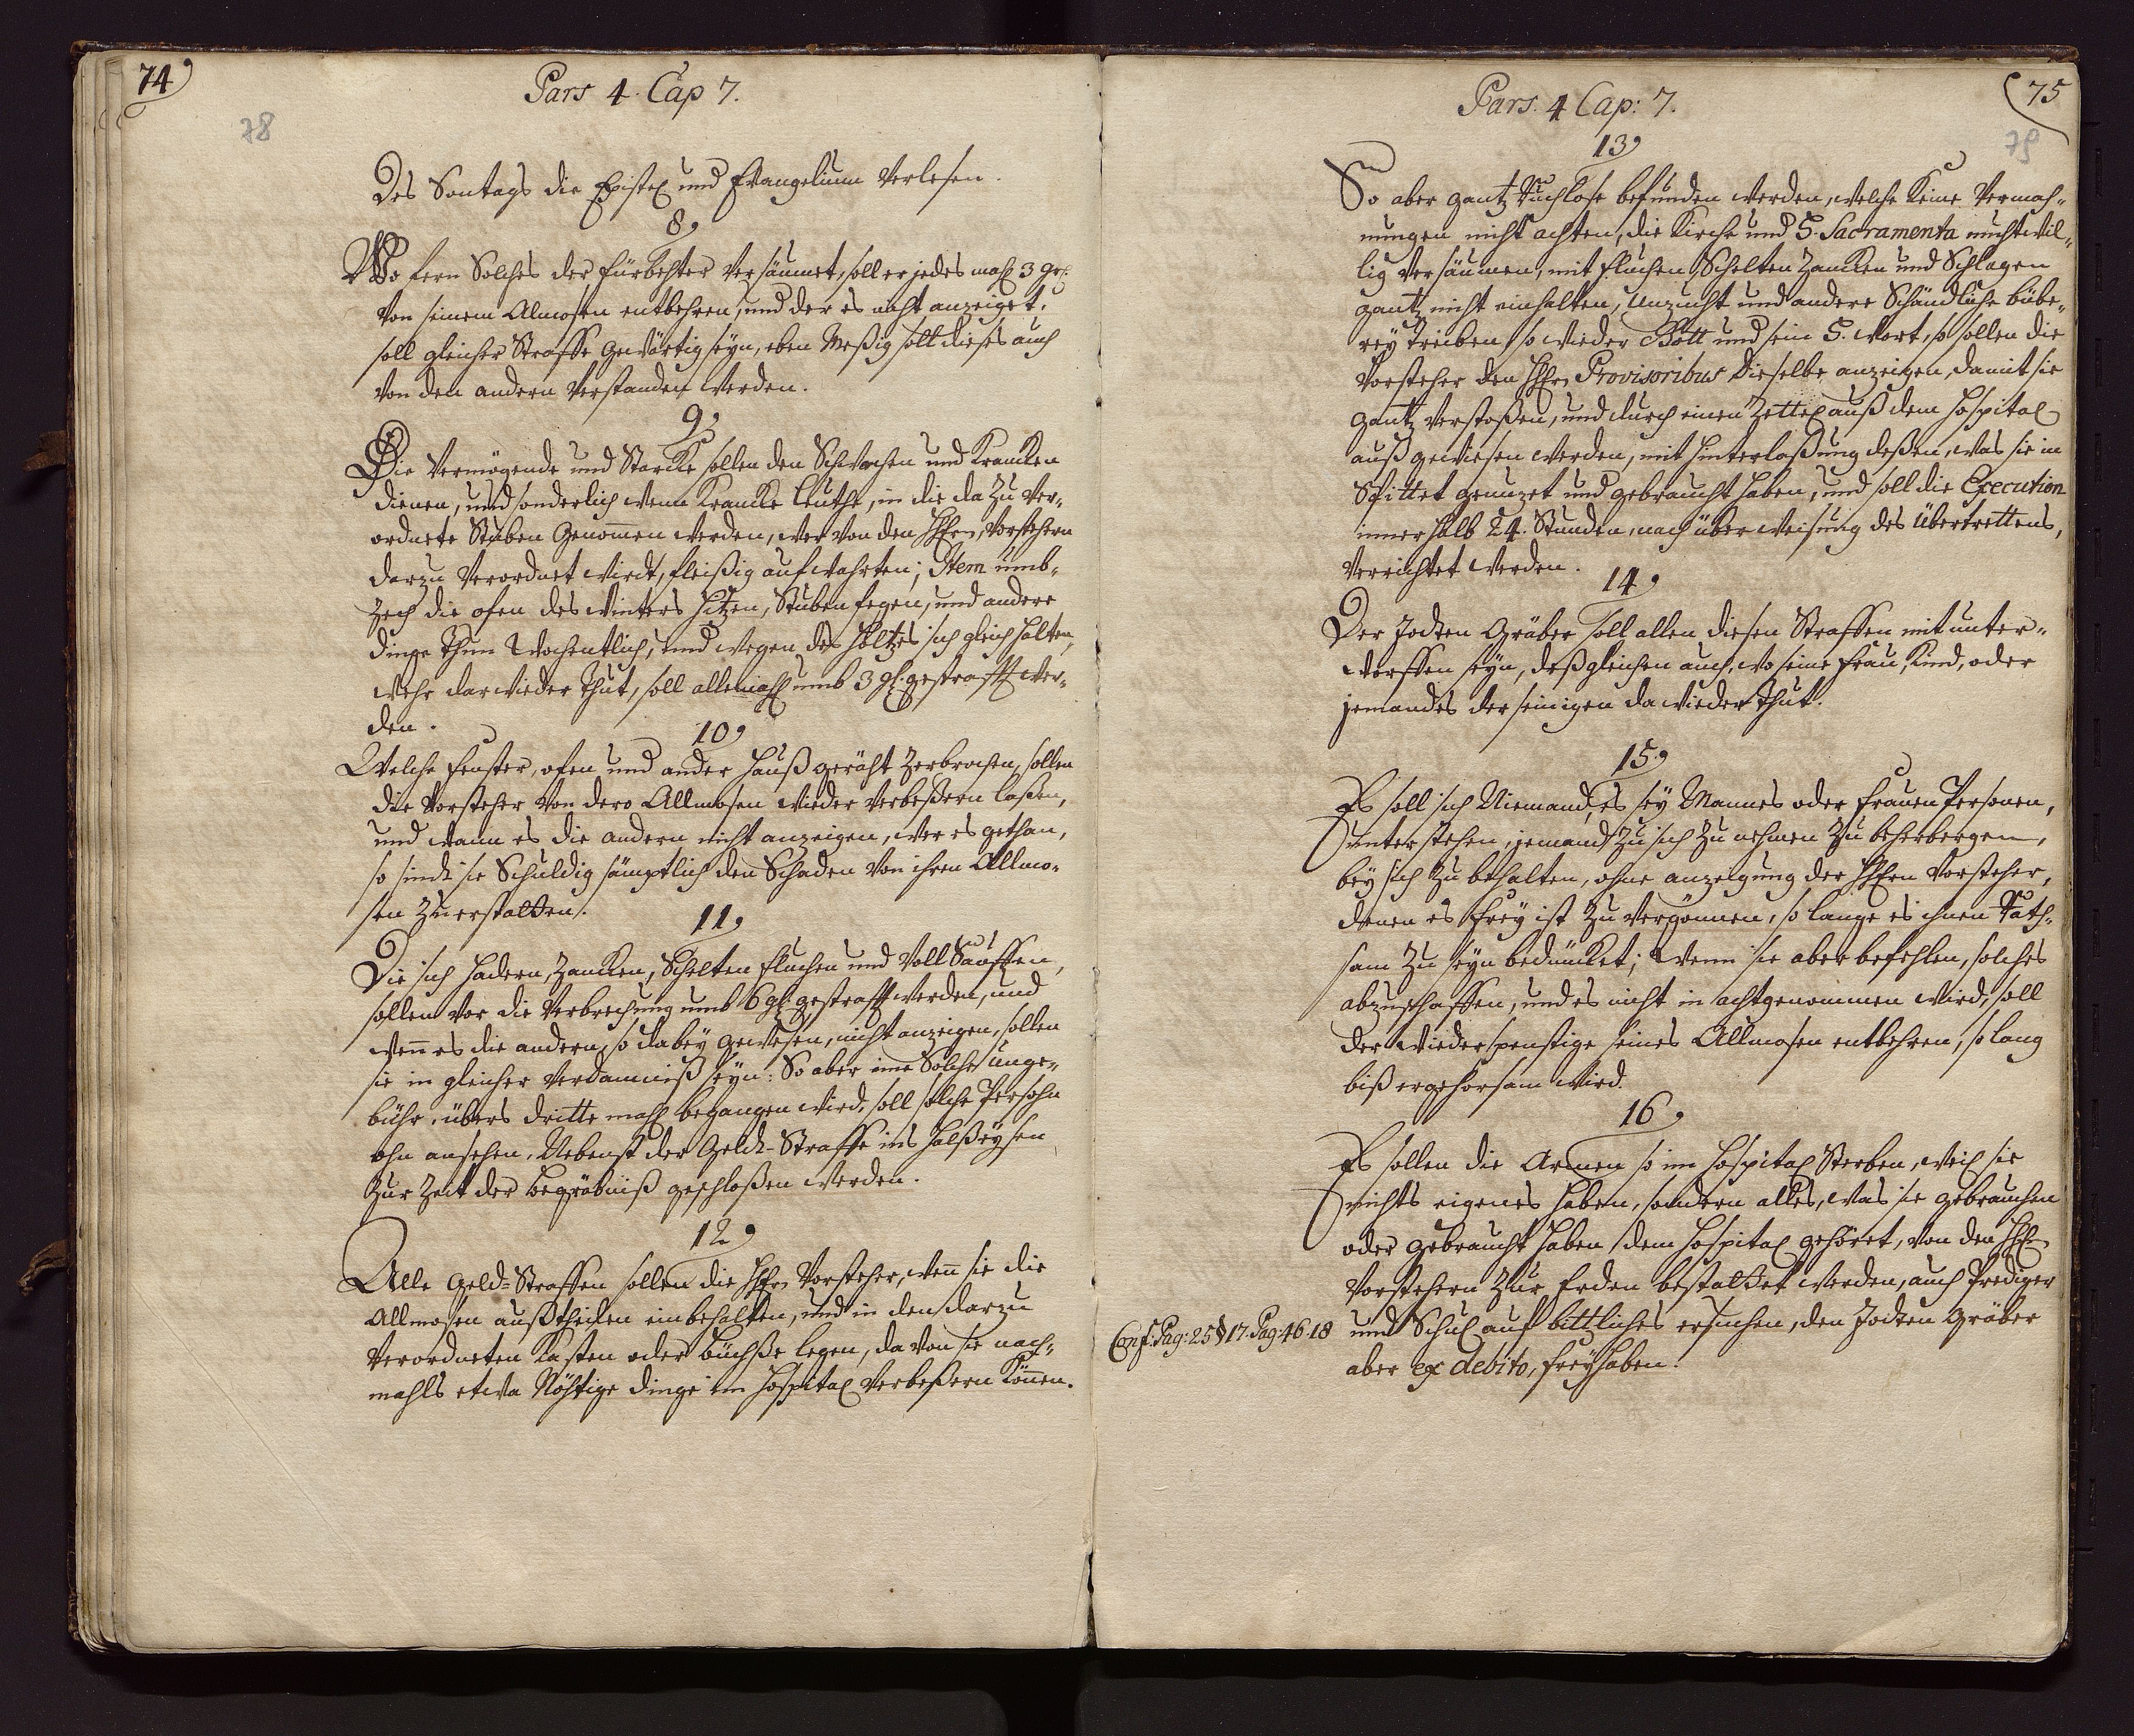 74
78
Pars 4. Cap 7.
Des Sontags die Epistel und Evangelium Verlesen.
8,
Wo fern Solches der fürbehter Versäumet, soll er jedes mahl 3 gr:
Von seinem Almosen entbehren, und der es nicht anzeiget,
soll gleicher Straffe gewärtig seyn, eben Meßig soll dieses auch
Von den andern Verstanden werden.
9,
Die Vermögende und Starcke sollen den Schwachen und Krancken
dienen, und sonderlich wenn Krancke Leuthe, in die da zu Ver-
ordnete Stuben Genommen werden, wer von den HhErn, Vorstehern
darzu Verordnet wirdt, fleißig aufwahrten; Item umb-
zech die ofen des Winters hitzen, Stuben fegen, und andere
dinge Thun Wochentlich, und wegen des Holtzes sich gleich halten,
Wehr darwieder Thut, soll allemahl umb 3 gl. gestrafft wer-
den.
10,
Welche fenster, ofen und ander Haußgeräht Zerbrochen, sollen
die Vorsteher Von dero Allmosen wieder Verbeßern laßen,
und wann es die andern nicht anzeigen, wer es gethan,
so sindt sie Schuldig sämptlich den Schaden Von ihren Allmo-
sen Zu erstatten.
11,
Die sich hadern, Zancken, Schelten fluchen und Voll Sauffen,
sollen vor die Verbrechung umb 6 gl. gestrafft werden, und
wenn es die andern, so dabey gewesen, nicht anzeigen, sollen
sie in gleicher Verdamniß seyn: So aber eine Solche unge-
bühr, übers dritte mahl begangen wird, soll solche Persohn
ohn ansehen, Nebenst der Geldt-Straffe ins Halßeysen
Zur Zeit der begräbniß geschloßen werden.
12,
Alle Geld-Straffen sollen die HhErn Vorsteher, wenn sie die
Allmosen außtheilen einbehalten, und in den darzu
Verordneten Kasten oder büchße legen, da Von sie nach-
mahls etwa Nöhtige dinge im Hospital Verbeßern Können.
75
79
Pars. 4 Cap: 7.
13,
So aber gantz Ruchlose befunden werden, welche Keine Vermah-
nungen nicht achten, die Kirche und H. Sacramenta muhtwil-
lig Versäumen, mit fluchen, Schelten Zancken und Schlagen
gantz nicht einhalten, Unzucht und andere Schändliche bübe-
rey Treiben, so wieder Gott und sein H. Wort, so sollen die
Vorsteher den HhErn Provisoribus dieselbe anzeigen, damit sie
gantz Verstoßen, und durch einen Zettel auß dem Hospital
außgewiesen werden, mit Hinterlaßung deßen, was sie in
Spittel genuzet und gebraucht haben, und soll die Execution
innerhalb 24. Stunden, nach überweisung des übertrettens,
Verrichtet werden.
14,
Der Todten Gräber soll allen diesen Straffen mit unter-
worffen seyn, deßgleichen auch, wo seine frau, Kind, oder
jemandes der seinigen dawieder Thut.
15,
Es soll sich Niemand, es sey Mannes oder frauen Personen,
unterstehen, jemand zu sich zu nehmen zu beherbergen,
bey sich zu behalten, ohne anzeigung der HhErn Vorsteher,
denen es frey ist zu Vergönnen, so lange es ihnen Rath-
sam zu seyn bedüncket; Wenn sie aber befehlen, solches
abzuschaffen, und es nicht in acht genommen wird, soll
der Wiederspenstige seines Allmosen entbehren, so lang
biß er gehorsam wird.
16,
Es sollen die Armen so im Hospital Sterben, weil sie
nichts eigenes haben, sondern alles, was sie gebrauchen
oder gebraucht haben, dem Hospital gehöret, von den HhErn
Vorstehern Zur Erden bestattet werden, auch Prediger
und Schul auf bittliches ersuchen, den Todten Gräber
aber ex debito, frey haben.
Conf. Pag: 25 § 17. Pag: 46. 18